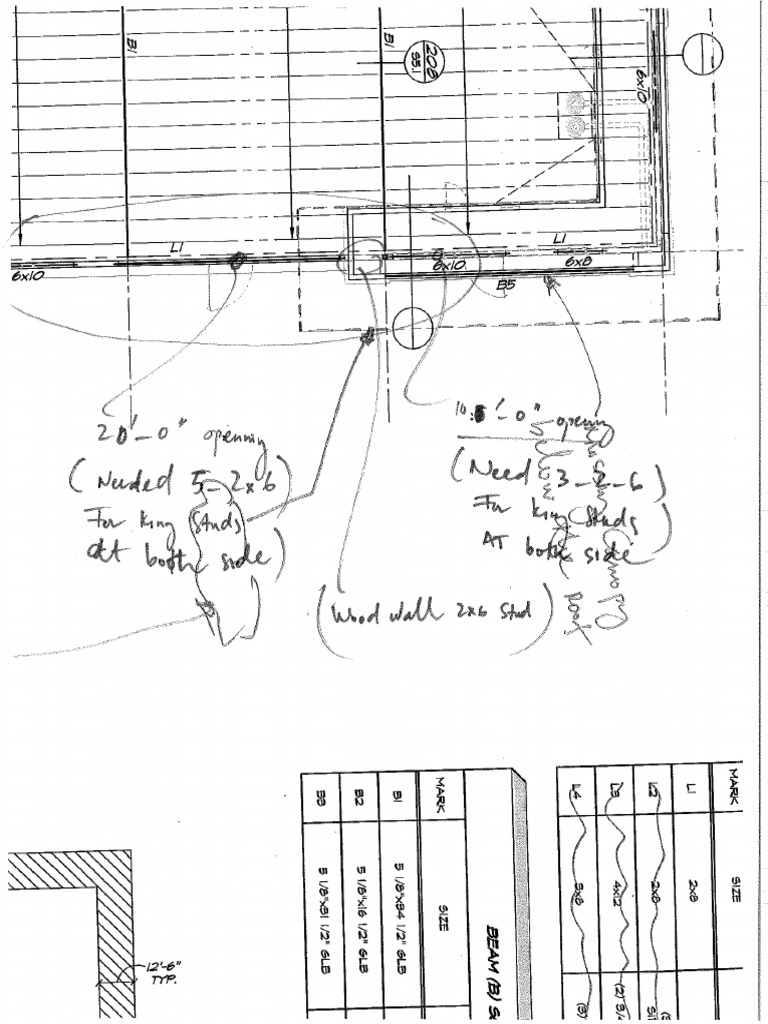 B1
B1
208
S5.1
6x10
L1
L1
6x10
6x10
6x8
B5
20'-0" opening
(Needed 5-2x6
For king studs
at both side)
10'-0" opening
(Need 3-2-6)
For king studs
AT both side
(Wood wall 2x6 stud)
Canopy
Roof
MARK
SIZE
L1
2x8
L2
2x8
L3
4x12
L4
BEAM (B)
MARK
SIZE
B1
5 1/8"x34 1/2" GLB
B2
5 1/8"x16 1/2" GLB
B3
5 1/8"x31 1/2" GLB
12'-6"
TYP.